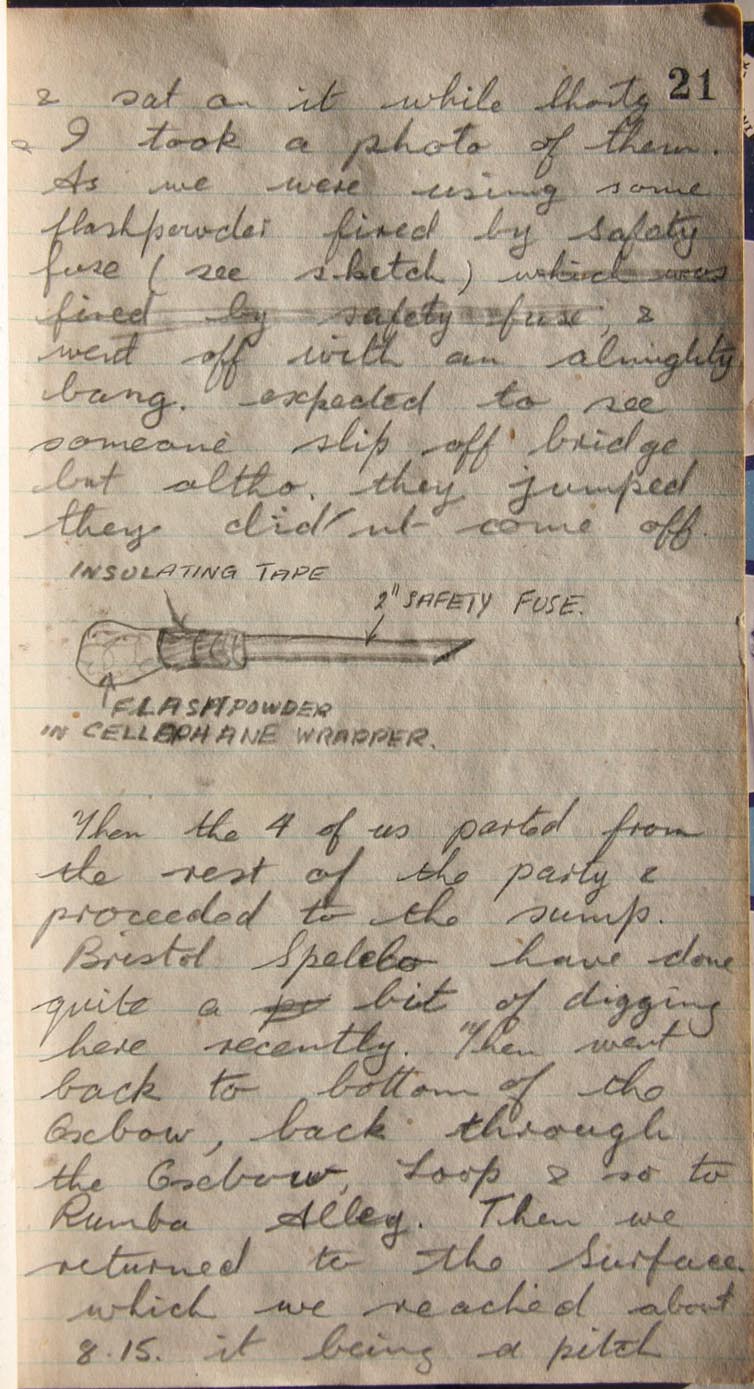 21
& sat on it while Shorty
& I took a photo of them.
As we were using some
flashpowder fired by safety
fuse (see sketch) which was
fired by safety fuse, &
went off with an almighty
bang. expected to see
someone slip off bridge
but altho. they jumped
they did'nt come off.
INSULATING TAPE
2" SAFETY FUSE.
FLASHPOWDER
IN CELLEPHANE WRAPPER.
Then the 4 of us parted from
the rest of the party &
proceeded to the sump.
Bristol Speleo have done
quite a bit of digging
here recently. Then went
back to bottom of the
Oxbow, back through
the Oxbow, Loop & so to
Rumba Alley. Then we
returned to the Surface.
which we reached about
8.15. it being a pitch